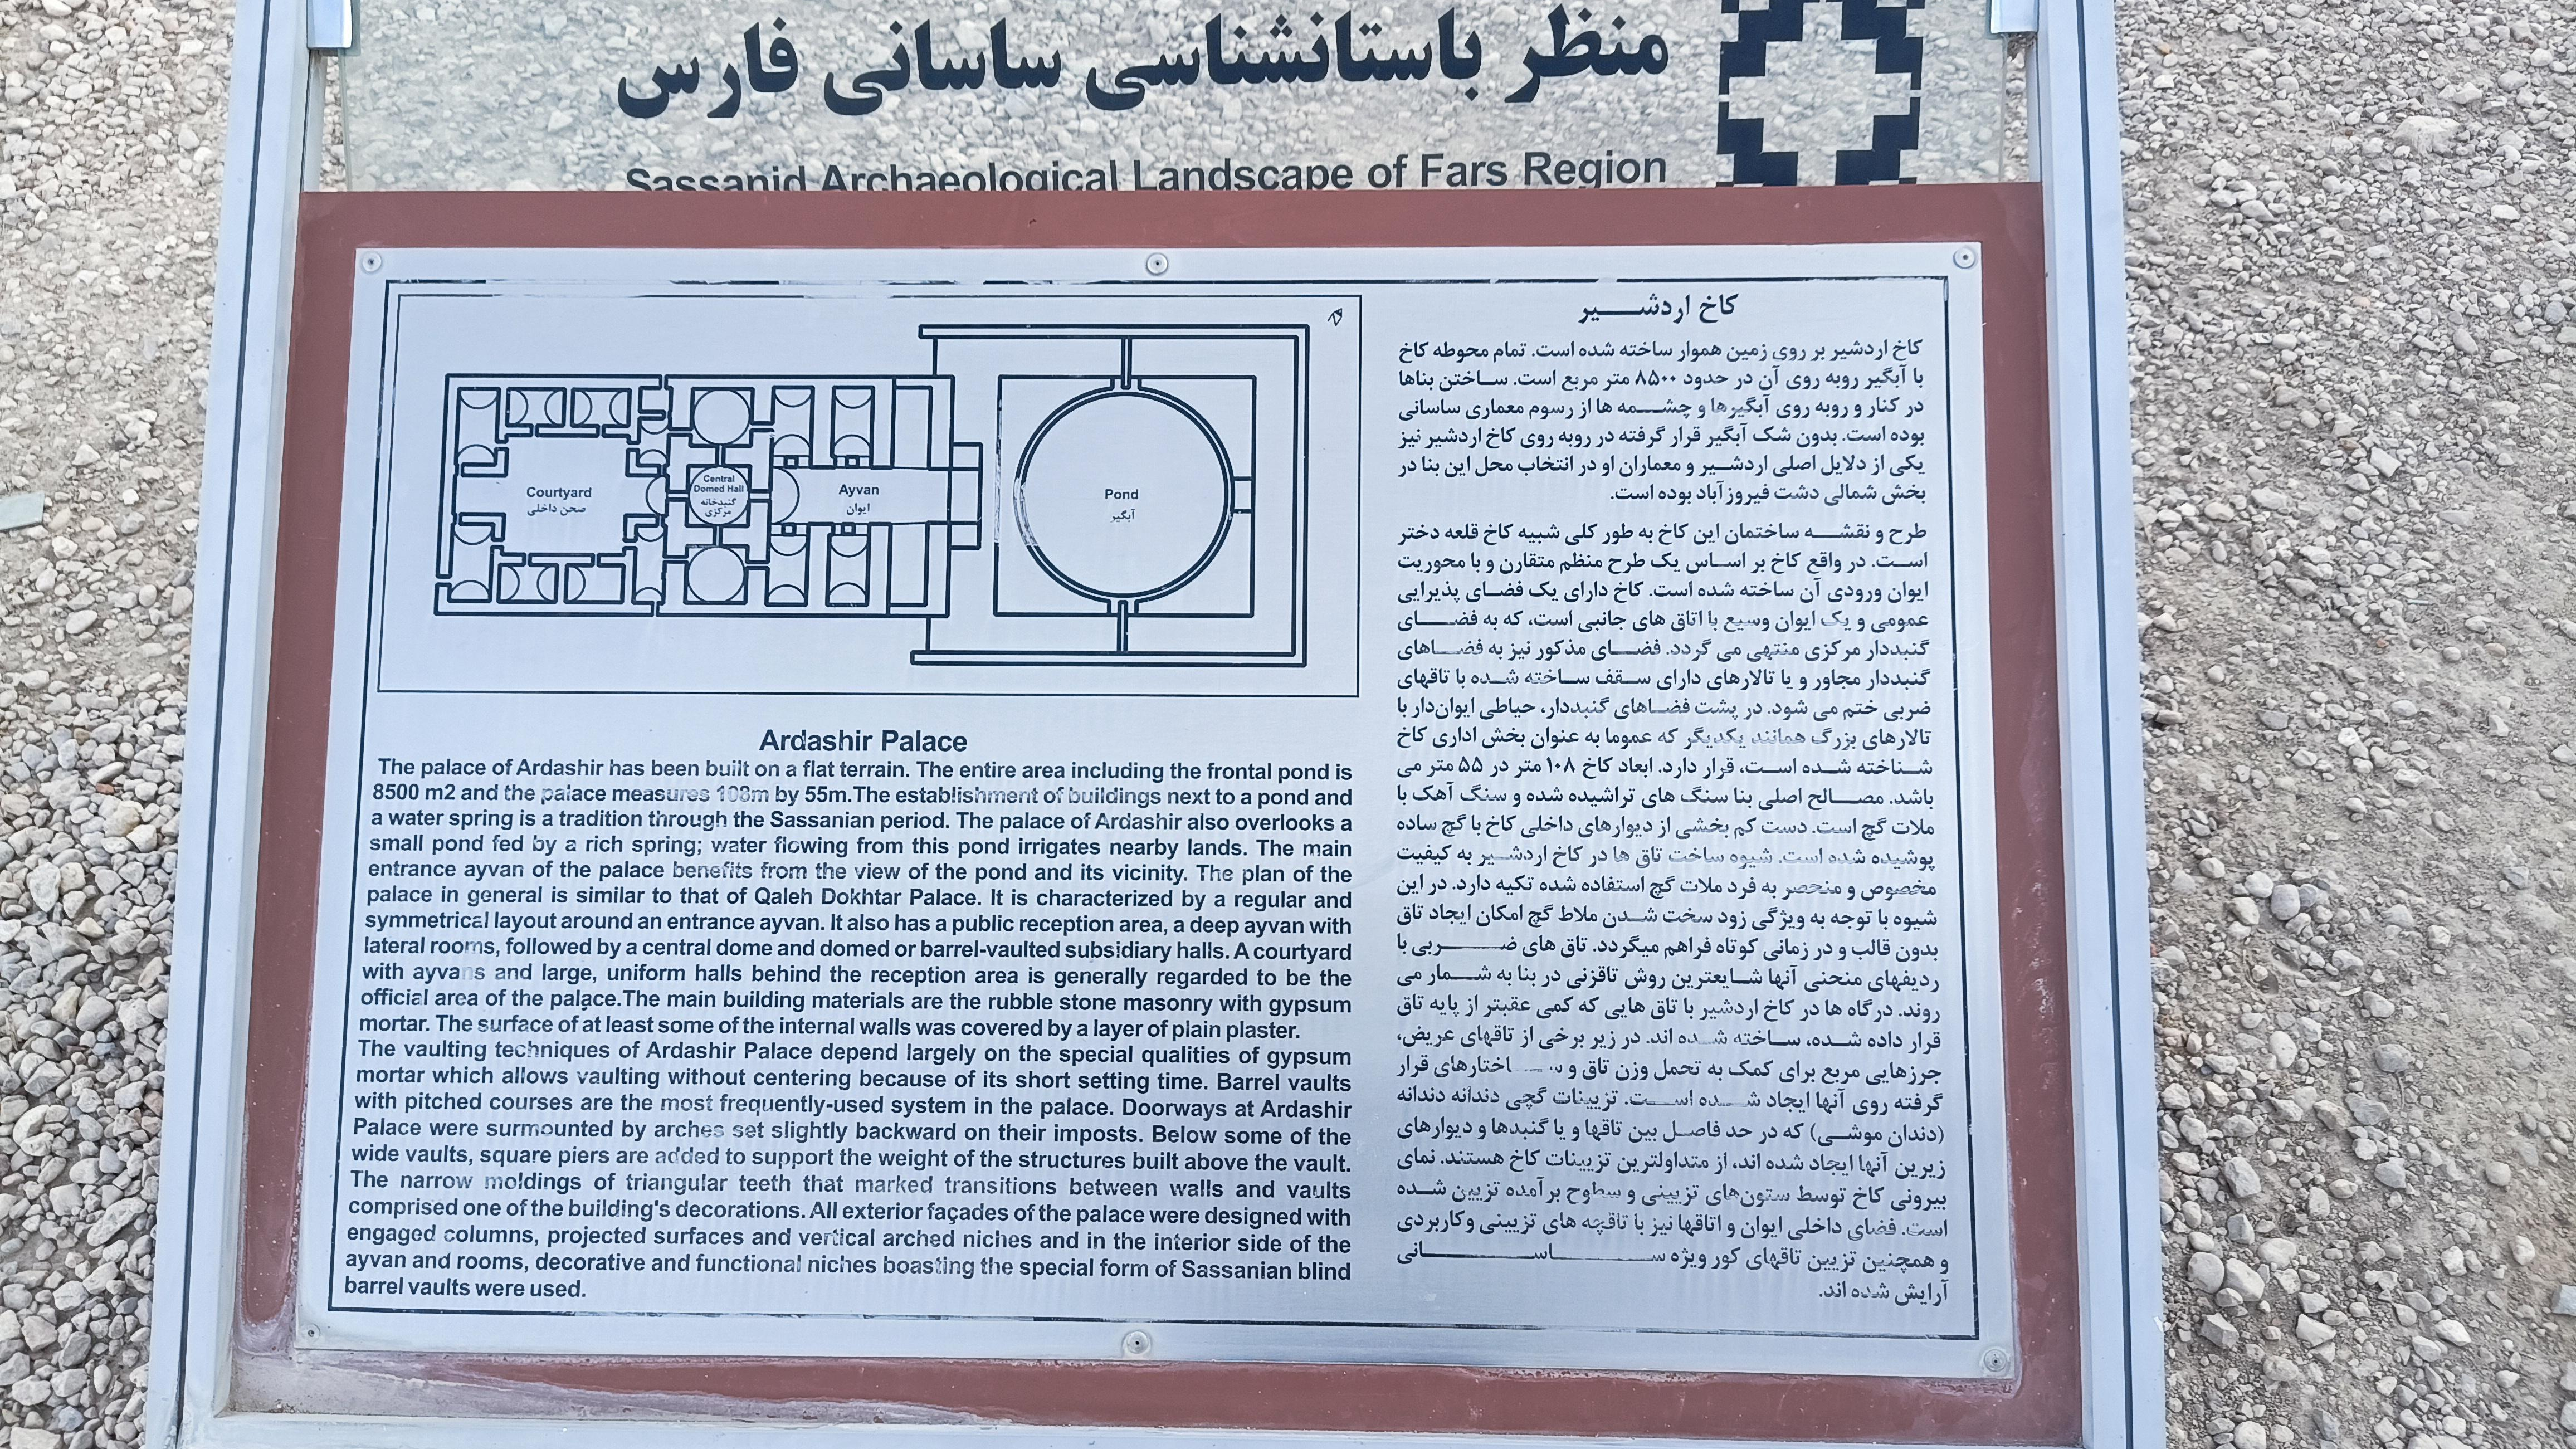 منظر باستانشناسی ساسانی فارس
Sassanid Archaeological Landscape of Fars Region
Courtyard
صحن داخلی
Central
Domed Hall
گنبدخانه
مرکزی
Ayvan
ایوان
Pond
آبگیر
Ardashir Palace
The palace of Ardashir has been built on a flat terrain. The entire area including the frontal pond is
8500 m2 and the palace measures 108m by 55m.The establishment of buildings next to a pond and
a water spring is a tradition through the Sassanian period. The palace of Ardashir also overlooks a
small pond fed by a rich spring; water flowing from this pond irrigates nearby lands. The main
entrance ayvan of the palace benefits from the view of the pond and its vicinity. The plan of the
palace in general is similar to that of Qaleh Dokhtar Palace. It is characterized by a regular and
symmetrical layout around an entrance ayvan. It also has a public reception area, a deep ayvan with
lateral rooms, followed by a central dome and domed or barrel-vaulted subsidiary halls. A courtyard
with ayvans and large, uniform halls behind the reception area is generally regarded to be the
official area of the palace.The main building materials are the rubble stone masonry with gypsum
mortar. The surface of at least some of the internal walls was covered by a layer of plain plaster.
The vaulting techniques of Ardashir Palace depend largely on the special qualities of gypsum
mortar which allows vaulting without centering because of its short setting time. Barrel vaults
with pitched courses are the most frequently-used system in the palace. Doorways at Ardashir
Palace were surmounted by arches set slightly backward on their imposts. Below some of the
wide vaults, square piers are added to support the weight of the structures built above the vault.
The narrow moldings of triangular teeth that marked transitions between walls and vaults
comprised one of the building's decorations. All exterior façades of the palace were designed with
engaged columns, projected surfaces and vertical arched niches and in the interior side of the
ayvan and rooms, decorative and functional niches boasting the special form of Sassanian blind
barrel vaults were used.
کاخ اردشیر
کاخ اردشیر بر روی زمین هموار ساخته شده است. تمام محوطه کاخ
با آبگیر روبه روی آن در حدود ۸۵۰۰ متر مربع است. ساختن بناها
در کنار و روبه روی آبگیرها و چشمه ها از رسوم معماری ساسانی
بوده است. بدون شک آبگیر قرار گرفته در روبه روی کاخ اردشیر نیز
یکی از دلایل اصلی اردشیر و معماران او در انتخاب محل این بنا در
بخش شمالی دشت فیروزآباد بوده است.
طرح و نقشه ساختمان این کاخ به طور کلی شبیه کاخ قلعه دختر
است. در واقع کاخ بر اساس یک طرح منظم متقارن و با محوریت
ایوان ورودی آن ساخته شده است. کاخ دارای یک فضای پذیرایی
عمومی و یک ایوان وسیع با اتاق های جانبی است، که به فضای
گنبددار مرکزی منتهی می گردد. فضای مذکور نیز به فضاهای
گنبددار مجاور و یا تالارهای دارای سقف ساخته شده با تاقهای
ضربی ختم می شود. در پشت فضاهای گنبددار، حیاطی ایوان‌دار با
تالارهای بزرگ همانند یکدیگر که عموما به عنوان بخش اداری کاخ
شناخته شده است، قرار دارد. ابعاد کاخ ۱۰۸ متر در ۵۵ متر می
باشد. مصالح اصلی بنا سنگ های تراشیده شده و سنگ آهک با
ملات گچ است. دست کم بخشی از دیوارهای داخلی کاخ با گچ ساده
پوشیده شده است. شیوه ساخت تاق ها در کاخ اردشیر به کیفیت
مخصوص و منحصر به فرد ملات گچ استفاده شده تکیه دارد. در این
شیوه با توجه به ویژگی زود سخت شدن ملاط گچ امکان ایجاد تاق
بدون قالب و در زمانی کوتاه فراهم میگردد. تاق های ضربی با
ردیفهای منحنی آنها شایعترین روش تاقزنی در بنا به شمار می
روند. درگاه ها در کاخ اردشیر با تاق هایی که کمی عقبتر از پایه تاق
قرار داده شده، ساخته شده اند. در زیر برخی از تاقهای عریض،
جرزهایی مربع برای کمک به تحمل وزن تاق و ساختارهای قرار
گرفته روی آنها ایجاد شده است. تزیینات گچی دندانه دندانه
(دندان موشی) که در حد فاصل بین تاقها و یا گنبدها و دیوارهای
زیرین آنها ایجاد شده اند، از متداولترین تزیینات کاخ هستند. نمای
بیرونی کاخ توسط ستون‌های تزیینی و سطوح برآمده تزیین شده
است. فضای داخلی ایوان و اتاقها نیز با تاقچه های تزیینی وکاربردی
و همچنین تزیین تاقهای کور ویژه ساسانی
آرایش شده اند.